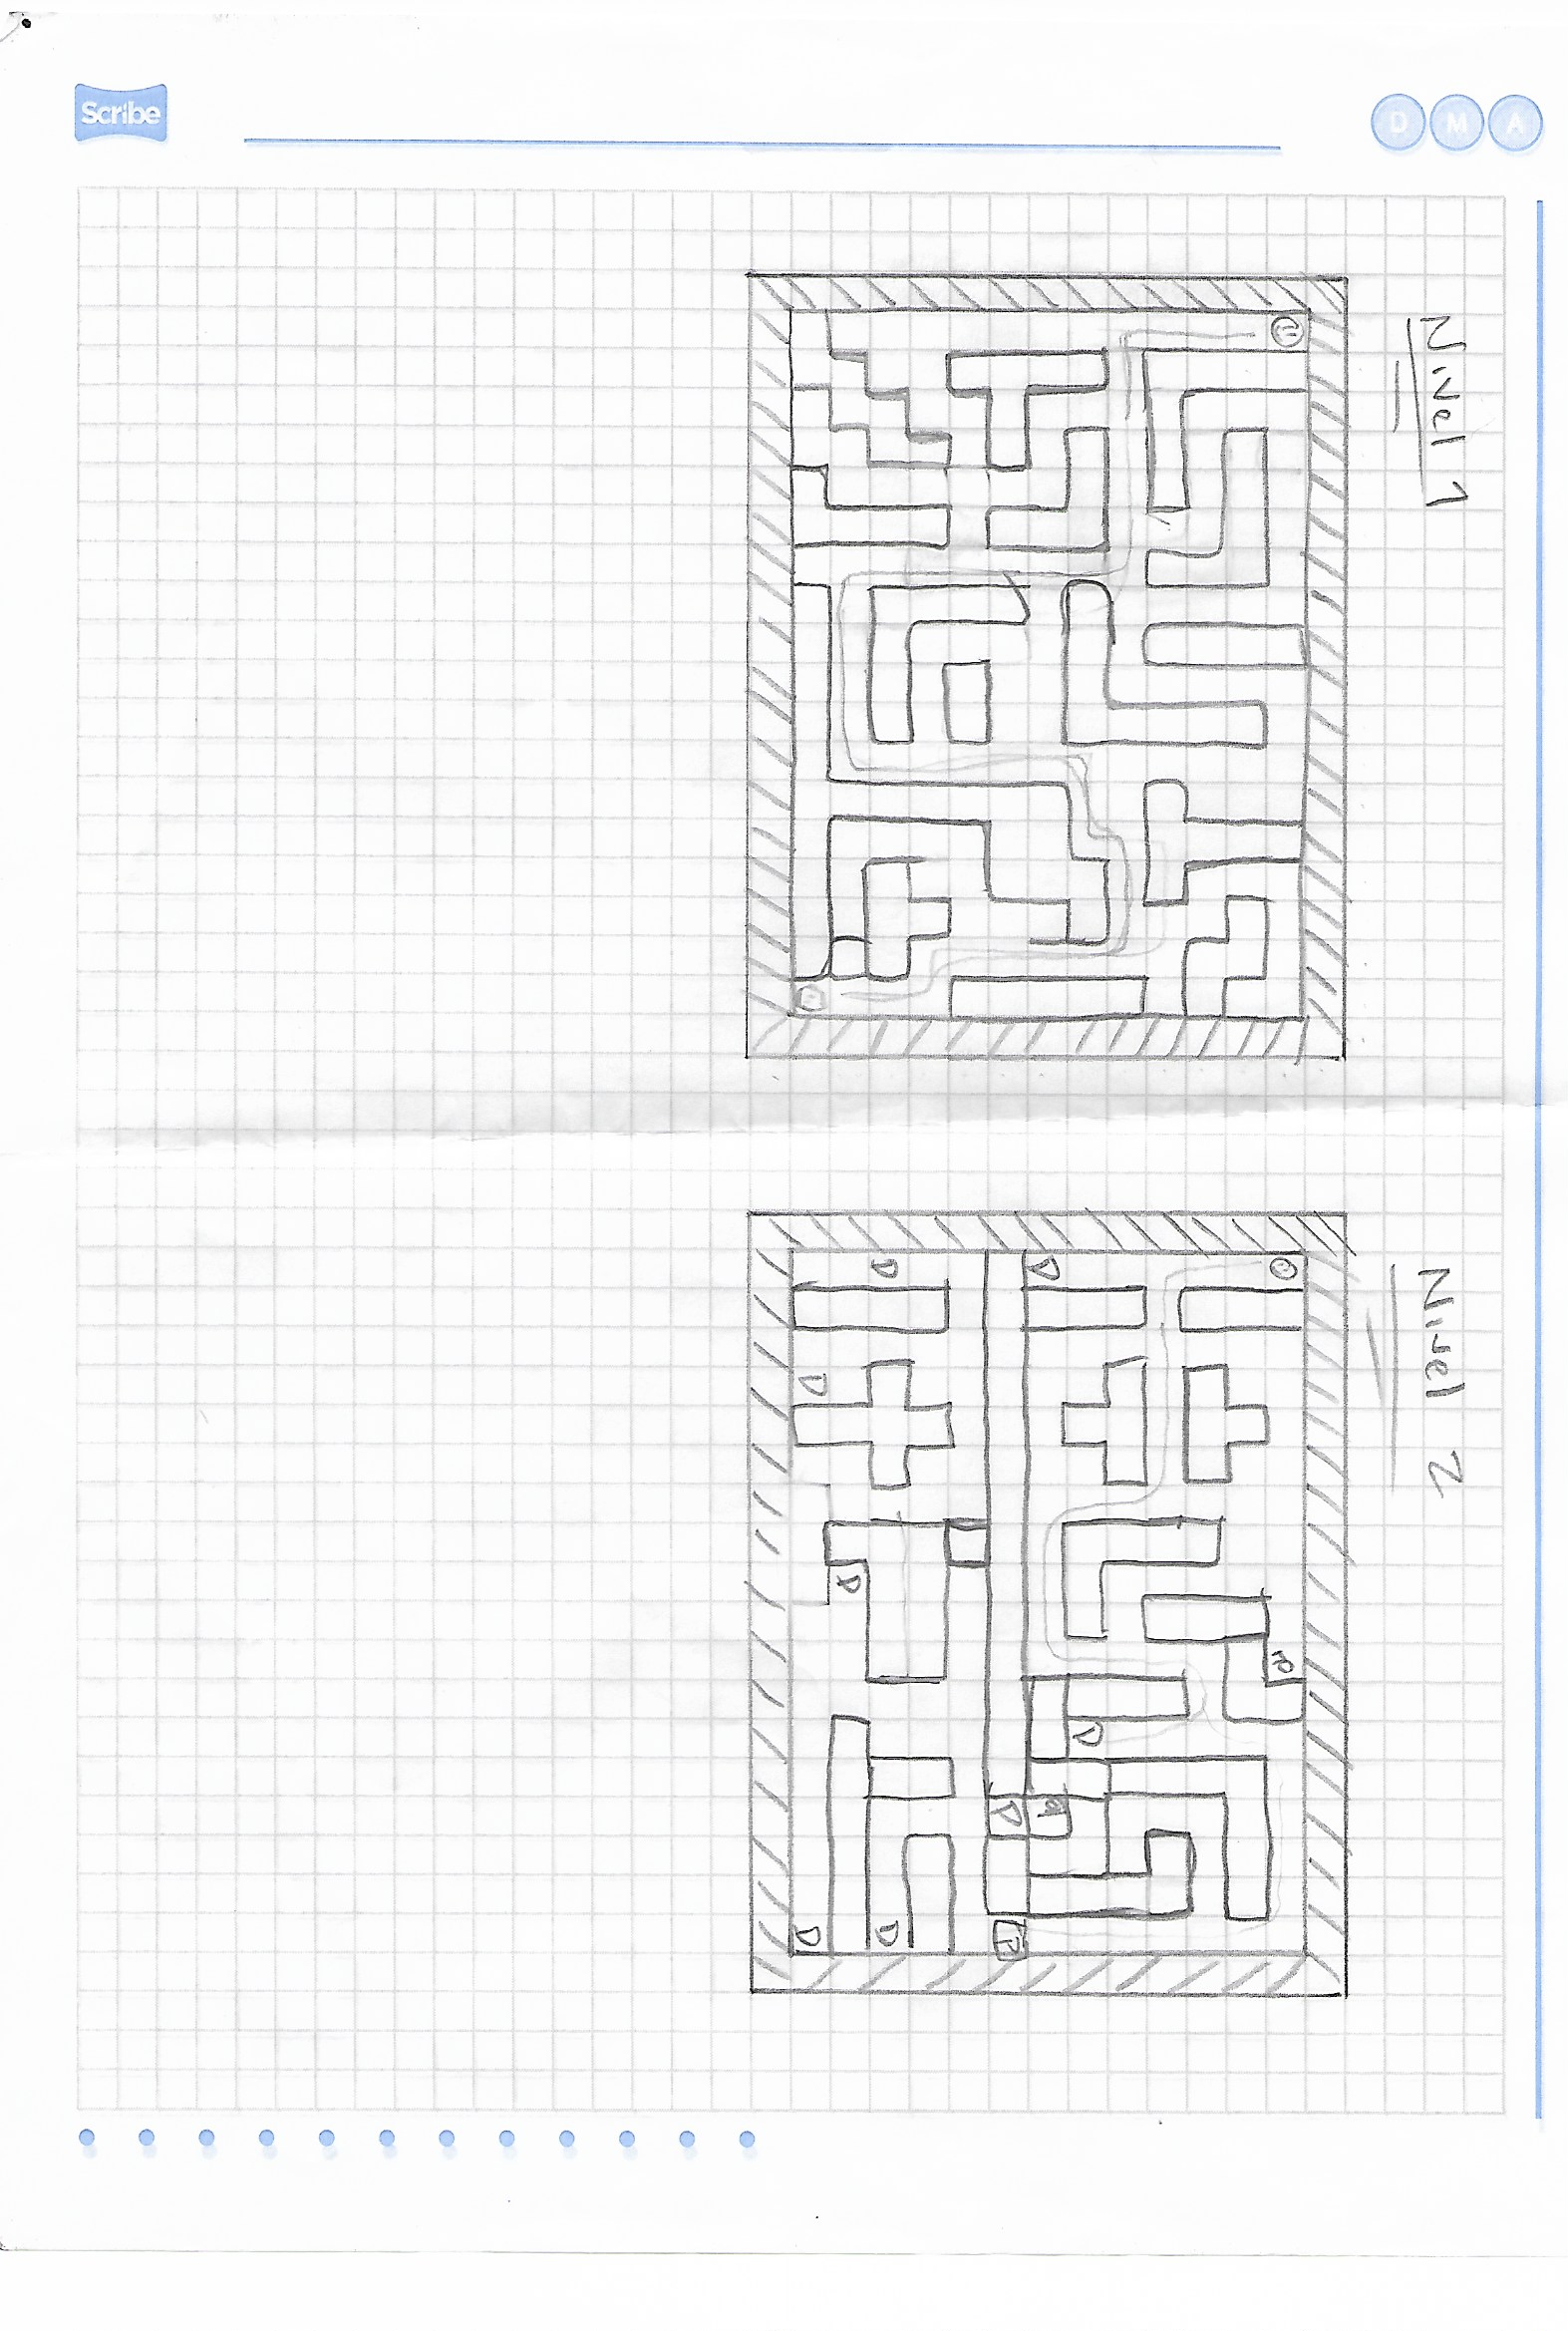 Scribe
D M A
Nivel 1
Nivel 2
D
D
D
D
D
D
D
D
D
P